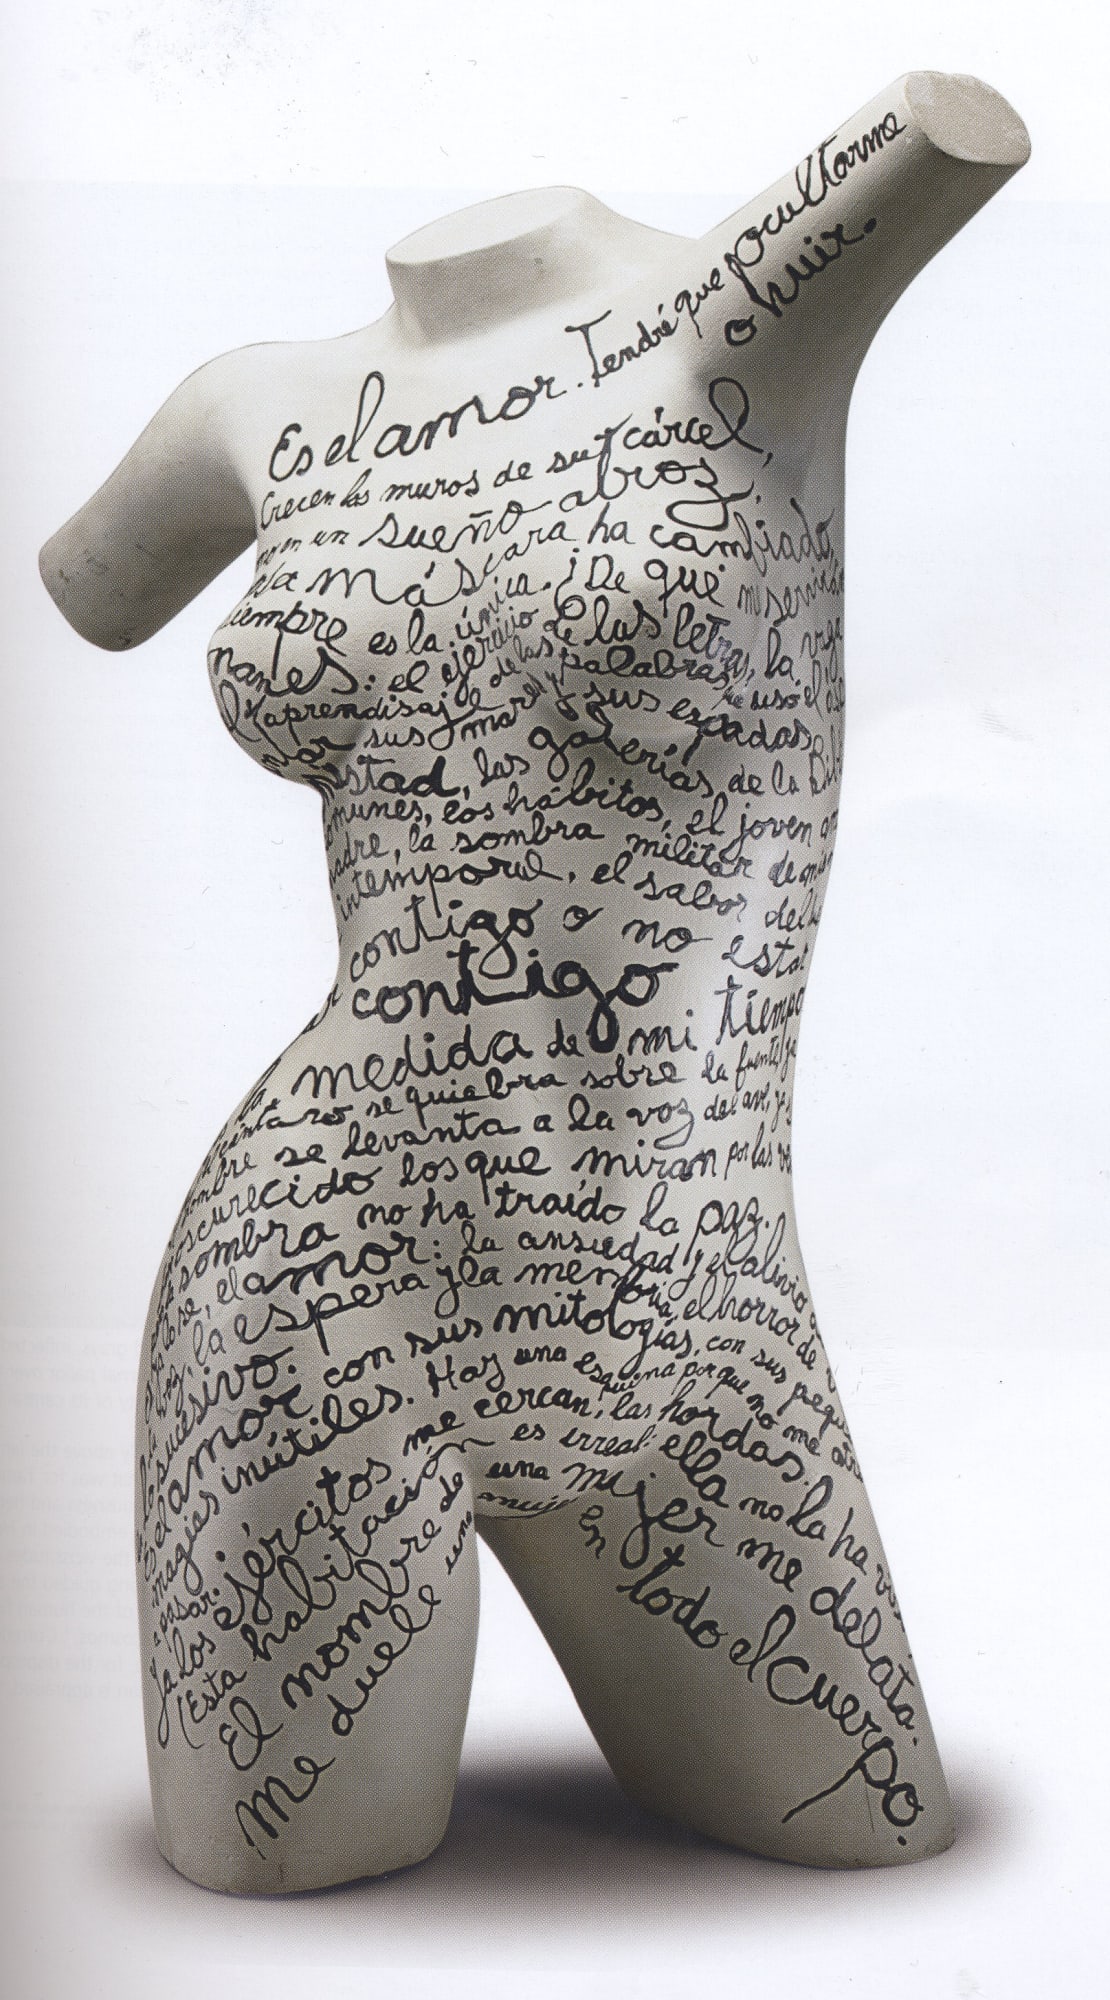 Es el amor. Tendré que ocultarme
o huir.
Crecen los muros de su cárcel,
en un sueño atroz.
la máscara ha cambiado,
siempre es la única. ¿De qué me servirán
el ejercicio de las letras, la vaga
aprendisaje de las palabras que usó el
sus mares y sus espadas,
las galerías de la Bib
munes, los hábitos, el joven am
adre, la sombra militar de mis
intemporal, el sabor del
contigo o no estar
contigo
la medida de mi tiempo
cántaro se quiebra sobre la fuente, ya
hombre se levanta a la voz del ave, ya
oscurecido los que miran por las ve
sombra no ha traído la paz.
el amor: la ansiedad y el alivio
voz, la espera y la memoria, el horror de
sucesivo.
Es el amor con sus mitologías, con sus pequ
magias inútiles. Hay una esquina por que no me atre
a pasar.
Ya los ejércitos me cercan, las hordas.
(Esta habitación es irreal: ella no la ha vis
El nombre de una mujer me delata.
Me duele una mujer en todo el cuerpo.